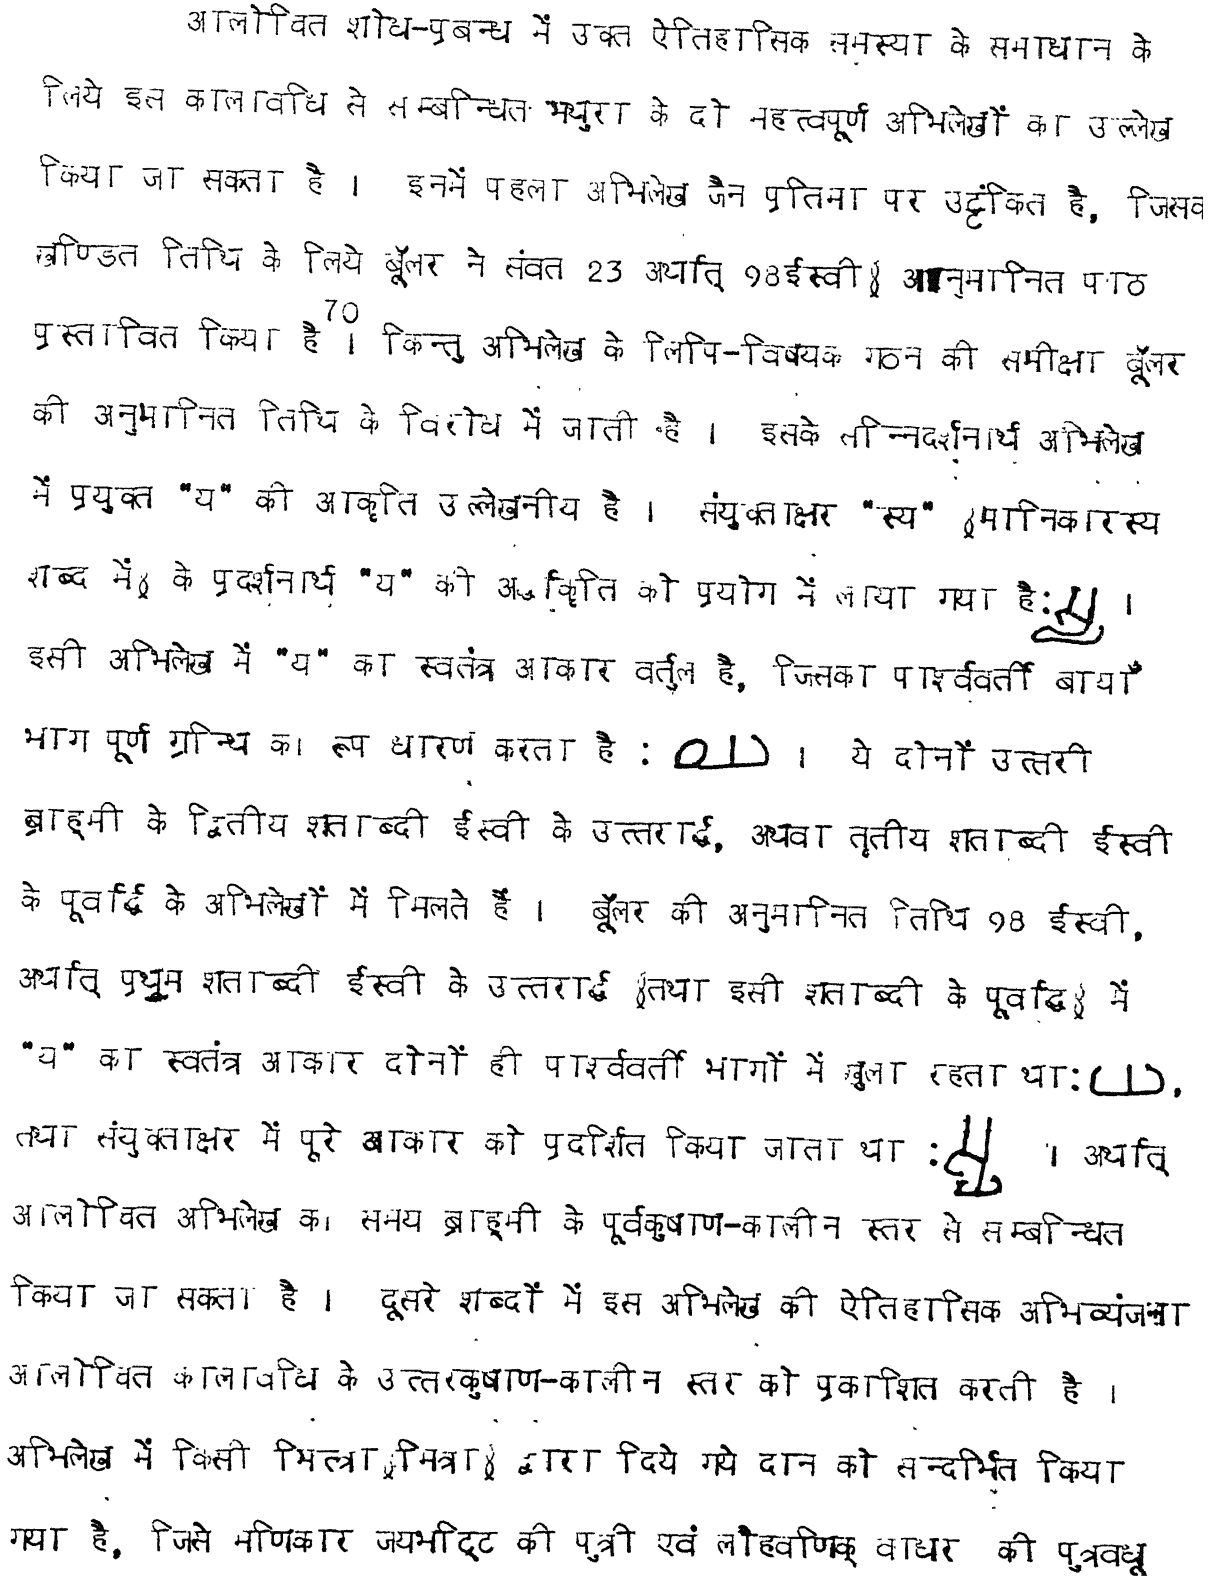 आलोचित शोध-प्रबन्ध में उक्त ऐतिहासिक समस्या के समाधान के
लिये इस कालावधि से सम्बन्धित मथुरा के दो महत्त्वपूर्ण अभिलेखों का उल्लेख
किया जा सकता है । इनमें पहला अभिलेख जैन प्रतिमा पर उट्टंकित है, जिसक
खण्डित तिथि के लिये बूॅलर ने संवत 23 अर्थात् 98ईस्वी॰ आनुमानित पाठ
प्रस्तावित किया है 70 । किन्तु अभिलेख के लिपि-विषयक गठन की समीक्षा बूॅलर
की अनुमानित तिथि के विरोध में जाती है । इसके सन्निदर्शनार्थ अभिलेख
में प्रयुक्त "य" की आकृति उल्लेखनीय है । संयुक्ताक्षर "स्य" (मानिकारस्य
शब्द में) के प्रदर्शनार्थ "य" की आकृति को प्रयोग में लाया गया है: ।
इसी अभिलेख में "य" का स्वतंत्र आकार वर्तुल है, जिसका पार्श्ववर्ती बायाँ
भाग पूर्ण ग्रन्थि का रूप धारण करता है : । ये दोनों उत्तरी
ब्राह्मी के द्वितीय शताब्दी ईस्वी के उत्तरार्द्ध, अथवा तृतीय शताब्दी ईस्वी
के पूर्वार्द्ध के अभिलेखों में मिलते हैं । बूॅलर की अनुमानित तिथि 98 ईस्वी,
अर्थात् प्रथम शताब्दी ईस्वी के उत्तरार्द्ध (तथा इसी शताब्दी के पूर्वार्द्ध) में
"य" का स्वतंत्र आकार दोनों ही पार्श्ववर्ती भागों में खुला रहता था: ,
तथा संयुक्ताक्षर में पूरे आकार को प्रदर्शित किया जाता था : । अर्थात्
आलोचित अभिलेख का समय ब्राह्मी के पूर्वकुषाण-कालीन स्तर से सम्बन्धित
किया जा सकता है । दूसरे शब्दों में इस अभिलेख की ऐतिहासिक अभिव्यंजना
आलोचित कालावधि के उत्तरकुषाण-कालीन स्तर को प्रकाशित करती है ।
अभिलेख में किसी मित्त्रा (मित्रा) द्वारा दिये गये दान को सन्दर्भित किया
गया है, जिसे मणिकार जयभट्टि की पुत्री एवं लौहवणिक् वाधर की पुत्रवधू